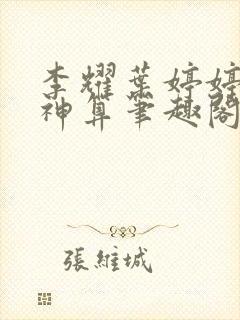 李耀葉婷婷
神算筆趣閣
張維城